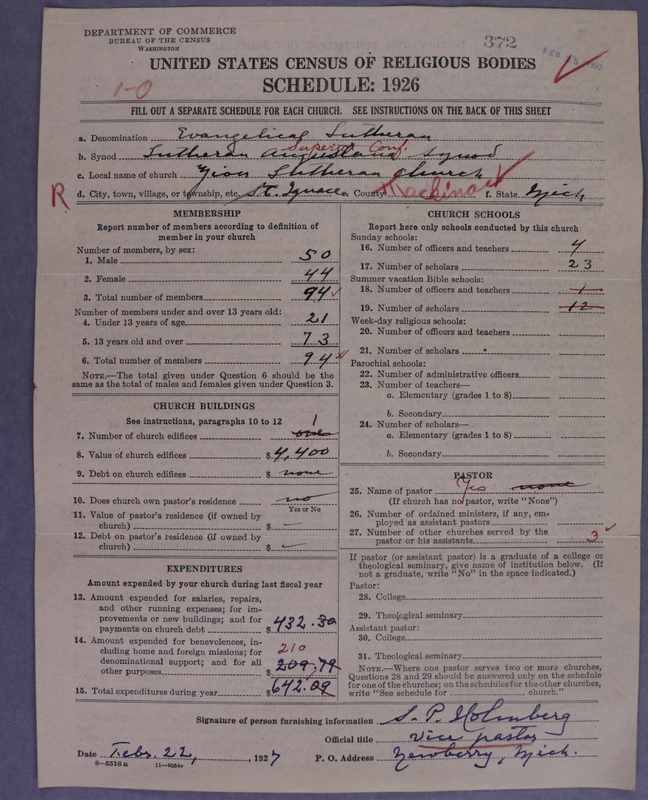 DEPARTMENT OF COMMERCE
BUREAU OF THE CENSUS
WASHINGTON
372
UNITED STATES CENSUS OF RELIGIOUS BODIES
SCHEDULE: 1926
1-0
FILL OUT A SEPARATE SCHEDULE FOR EACH CHURCH. SEE INSTRUCTIONS ON THE BACK OF THIS SHEET
a. Denomination Evangelical Lutheran
Superior Conf.
b. Synod Lutheran Augustana Synod
c. Local name of church Zion Lutheran Church
R d. City, town, village, or township, etc. St. Ignace e. County Mackinac f. State Mich
MEMBERSHIP
Report number of members according to definition of
member in your church
Number of members, by sex:
1. Male 50
2. Female 44
3. Total number of members 94
Number of members under and over 13 years old:
4. Under 13 years of age 21
5. 13 years old and over 73
6. Total number of members 94
NOTE.—The total given under Question 6 should be
same as the total of males and females given under Question 3.
CHURCH BUILDINGS
See instructions, paragraphs 10 to 12
1
7. Number of church edifices one
8. Value of church edifices $4,400
9. Debt on church edifices $ none
10. Does church own pastor's residence no
Yes or No
11. Value of pastor's residence (if owned by
church) $ —
12. Debt on pastor's residence (if owned by
church) $ —
EXPENDITURES
Amount expended by your church during last fiscal year
13. Amount expended for salaries, repairs,
and other running expenses; for im-
provements or new buildings; and for
payments on church debt $ 432.30
14. Amount expended for benevolences, in-
cluding home and foreign missions; for 210
denominational support; and for all
other purposes $ 209.79
15. Total expenditures during year $ 642.09
CHURCH SCHOOLS
Report here only schools conducted by this church
Sunday schools:
16. Number of officers and teachers 4
17. Number of scholars 23
Summer vacation Bible schools:
18. Number of officers and teachers 1
19. Number of scholars 12
Week-day religious schools:
20. Number of officers and teachers
21. Number of scholars
Parochial schools:
22. Number of administrative officers
23. Number of teachers—
a. Elementary (grades 1 to 8)
b. Secondary
24. Number of scholars—
a. Elementary (grades 1 to 8)
b. Secondary
PASTOR
25. Name of pastor Yes none
(If church has no pastor, write "None")
26. Number of ordained ministers, if any, em-
ployed as assistant pastors
27. Number of other churches served by the
pastor or his assistants 3
If pastor (or assistant pastor) is a graduate of a college or
theological seminary, give name of institution below. (If
not a graduate, write "No" in the space indicated.)
Pastor:
28. College
29. Theological seminary
Assistant pastor:
30. College
31. Theological seminary
NOTE.—Where one pastor serves two or more churches,
Questions 28 and 29 should be answered only on the schedule
for one of the churches; on the schedules for the other churches,
write "See schedule for church."
Signature of person furnishing information S. P. Holmberg
Official title Vice pastor
Date Febr. 22, 1927 P. O. Address Newberry, Mich.
8-5518a